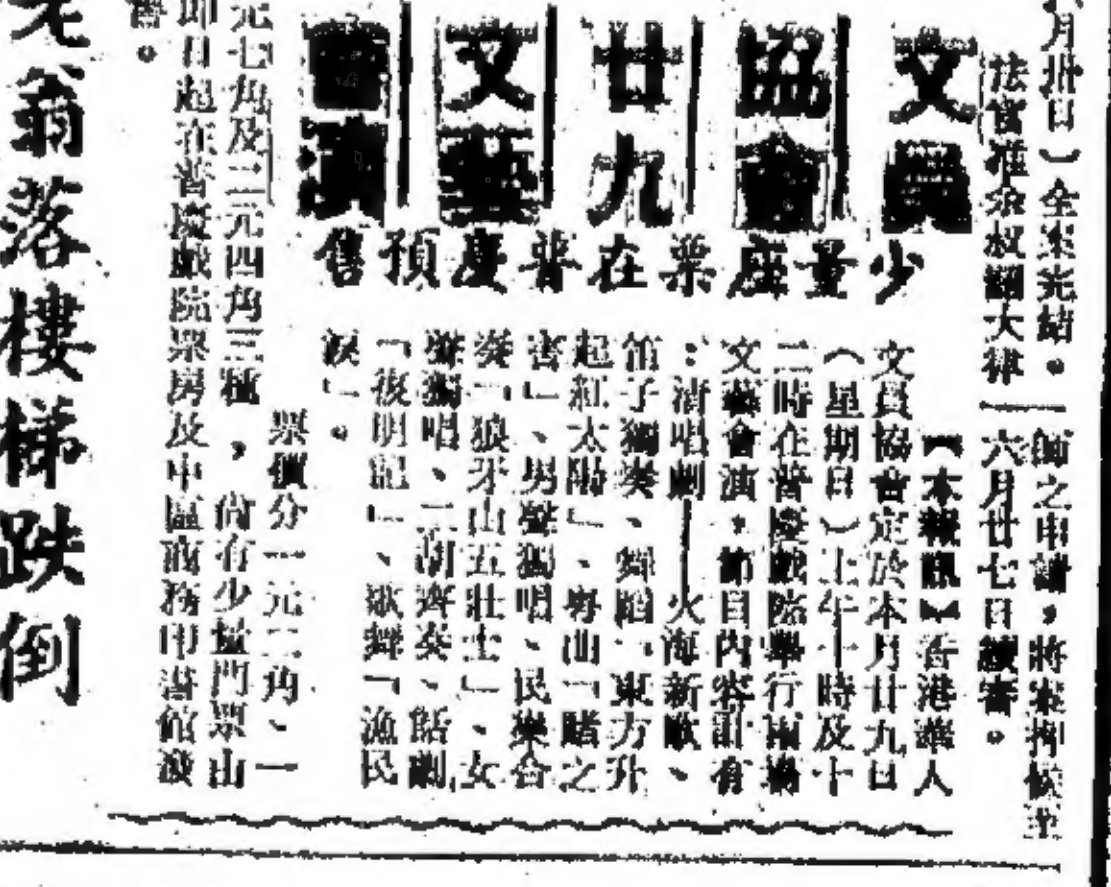 月卅日）全案完結。
法官准余叔韶大律
師之申請，將案押候至
六月廿七日續審。
文員
協會
廿九
文藝
會演
少量座票在普慶預售
【本報訊】香港華人
文員協會定於本月廿九日
（星期日）上午十時及十
二時在普慶戲院舉行兩場
文藝會演，節目內容計有
：清唱劇——火海新歌、
笛子獨奏、舞蹈「東方升
起紅太陽」、粵曲「賭之
害」、男聲獨唱、民樂合
奏「狼牙山五壯士」、女
聲獨唱、二胡齊奏、話劇
「夜明記」、歌舞「漁民
淚」。
票價分一元二角、一
元七角及二元四角三種，尚有少量門票由
即日起在普慶戲院票房及中區商務印書館發
售。
老翁落樓梯跌倒